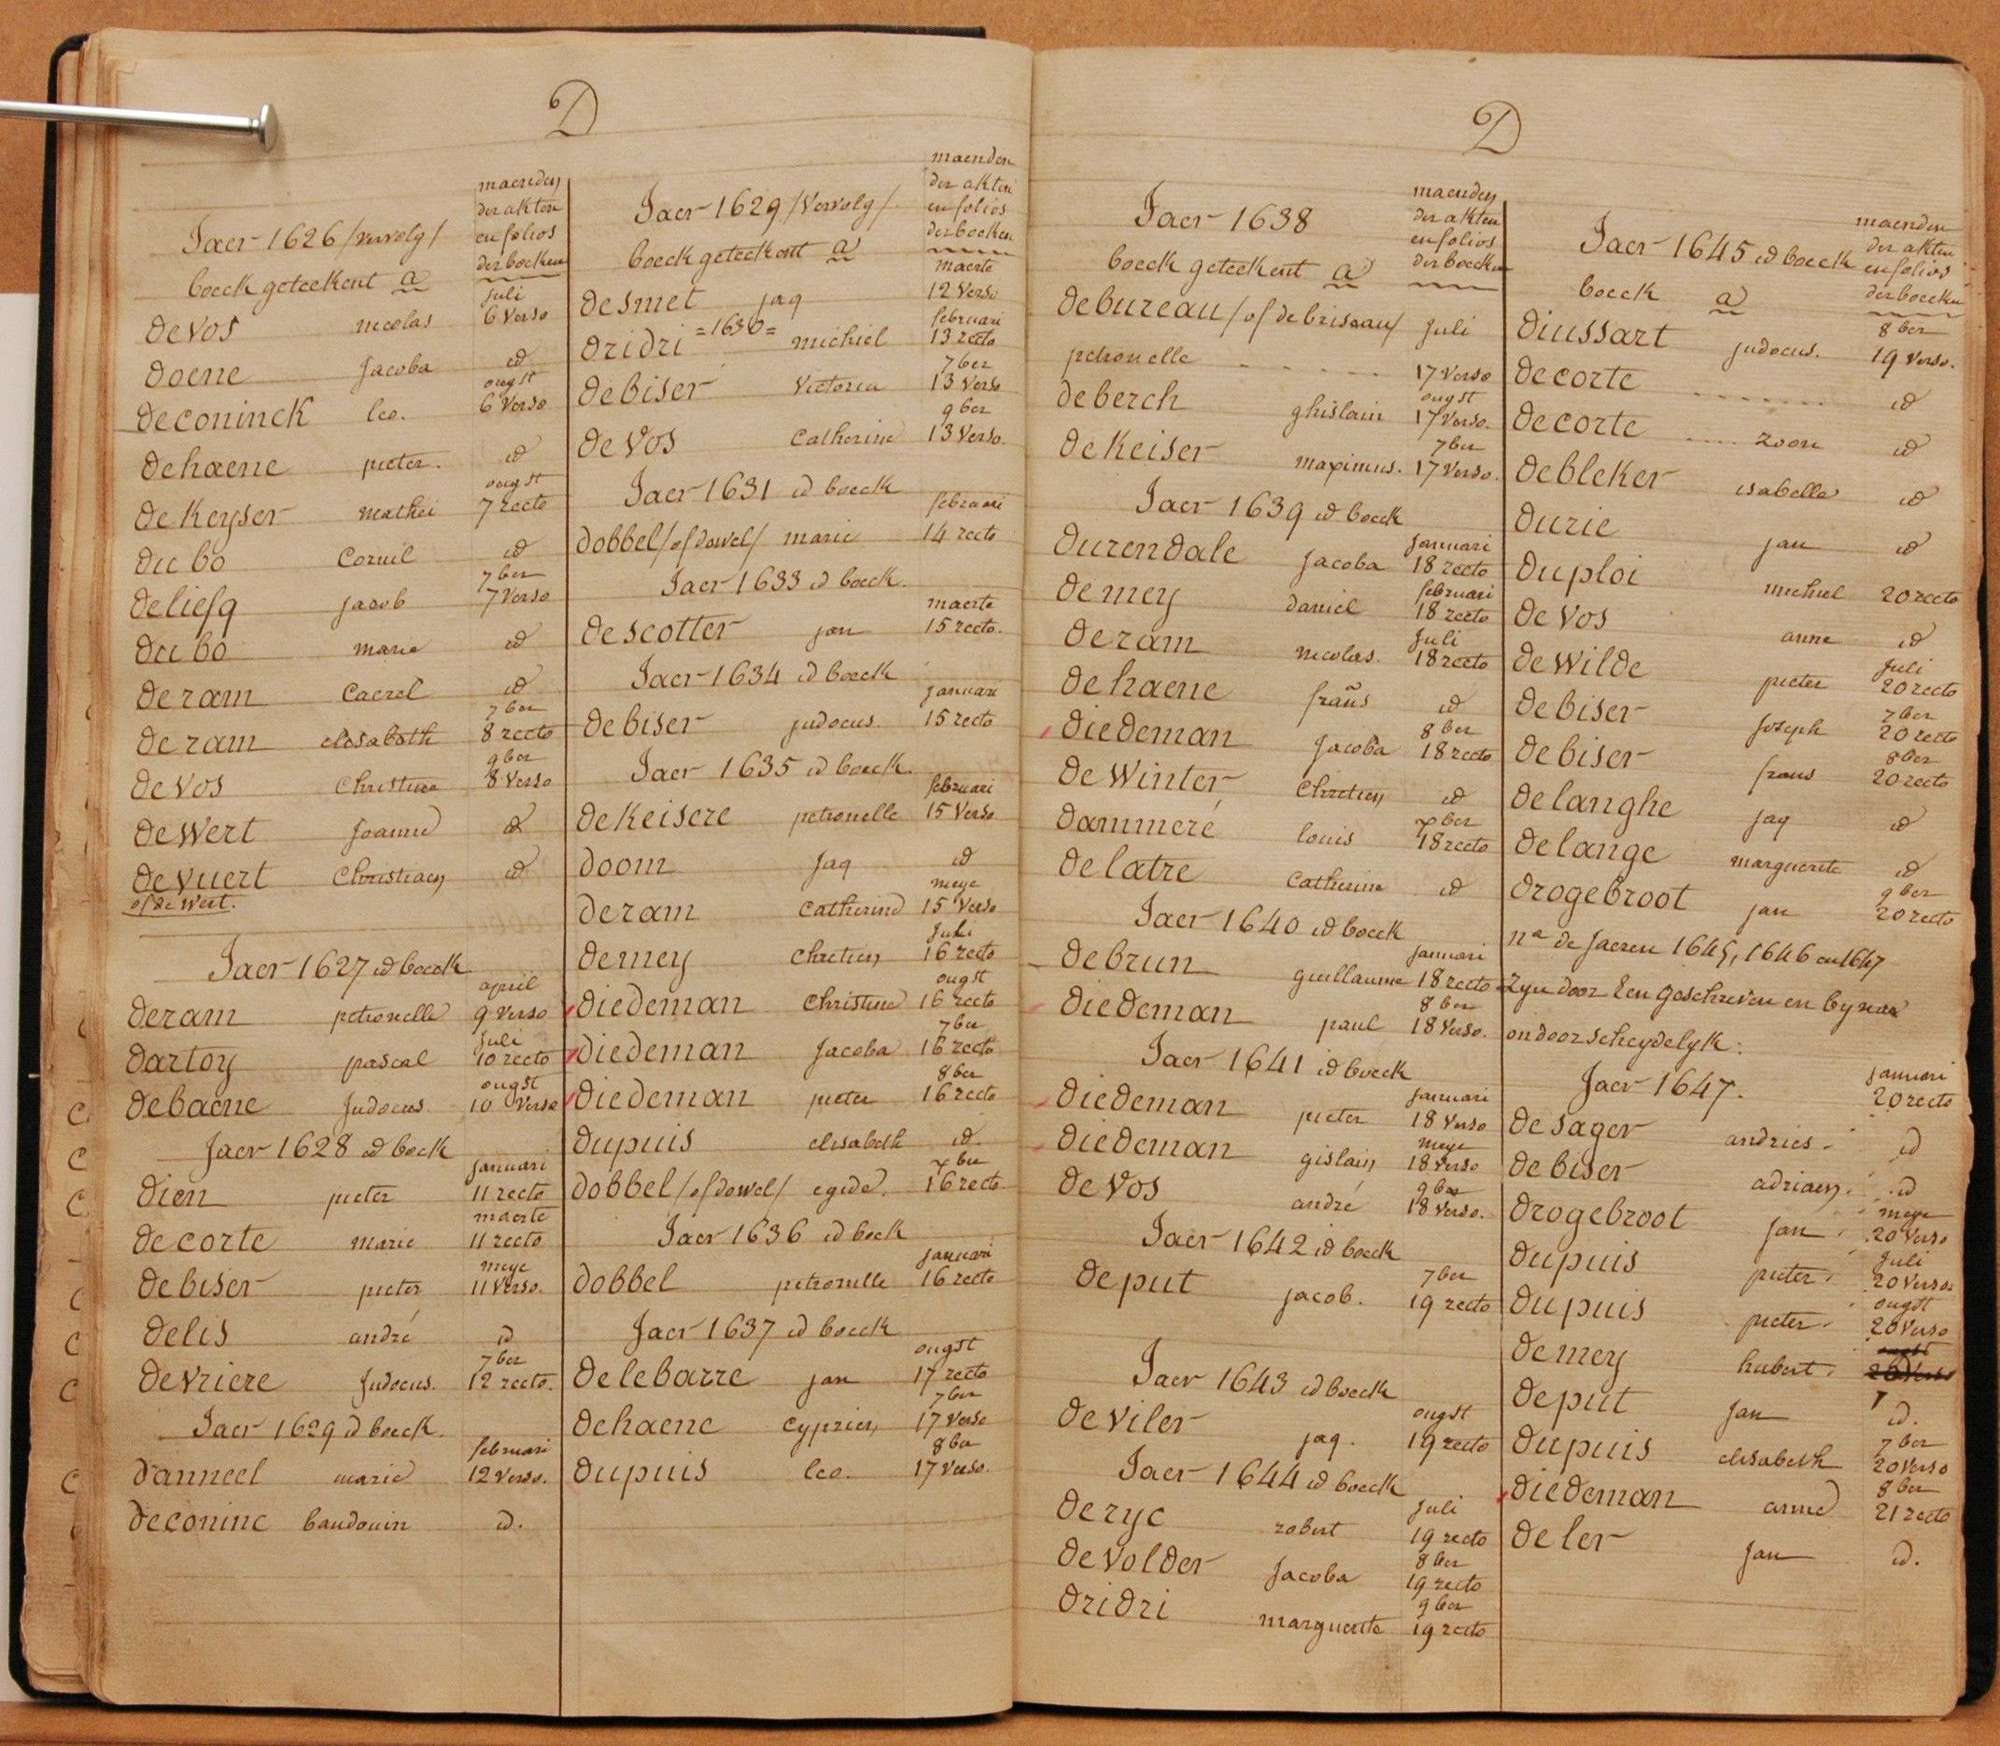 D
maenden
der akten
en folios
der boeken
Jaer 1626 /vervolg/
boeck geteekent a
devos nicolas juli 6 verso
doene jacoba id
deconinck leo. ougst 6 verso
dehaene pieter. id
dekeyser mathei ougst 7 recto
dubo Cornil id
deliefq jacob 7ber 7 verso
dubo marie id
deram Caerel id
deram elisabeth 7ber 8 recto
devos Christine 9ber 8 verso
dewert Joanne id
devuert Christiaen id
of de Wert.
Jaer 1627 id boeck
deram petronelle april 9 verso
dartoy pascal juli 10 recto
debaene Judocus ougst 10 verso
Jaer 1628 id boeck
dien pieter januari 11 recto
decorte marie maerte 11 recto
debiser pieter meye 11 verso.
delis andré id
devriere Judocus. 7ber 12 recto.
Jaer 1629 id boeck.
danneel marie februari 12 verso.
deconinc baudouin id.
maenden
der akten
en folios
der boeken
Jaer 1629 /vervolg/
boeck geteekent a
desmet jaq maerte 12 verso
=1630=
dridri michiel februari 13 recto
debiser victoria 7ber 13 verso
devos Catherine 9ber 13 verso.
Jaer 1631 id boeck
dobbel /of dowel/ marie februari 14 recto
Jaer 1633 id boeck.
descotter jan maerte 15 recto.
Jaer 1634 id boeck
debiser judocus. januari 15 recto
Jaer 1635 id boeck.
dekeisere petronelle februari 15 verso
doom Jaq id
deram Catherine meye 15 verso
demey Chretien Juli 16 recto
diedeman Christine ougst 16 recto
diedeman Jacoba 7ber 16 recto
diedeman pieter 8ber 16 recto
dupuis elisabeth id.
dobbel /of dowel/ egide. 16 recto
Jaer 1636 id boek
dobbel petronelle januari 16 recto
Jaer 1637 id boeck
delebarre jan ougst 17 recto
dehaene Cyprien 7ber 17 verso
dupuis leo. 8ber 17 verso.
D
maenden
der akten
en folios
der boeken
Jaer 1638
boeck geteekent a
debureau /of debriseau/ Juli
petronelle 17 verso
deberch ghislain ougst 17 verso.
dekeiser maximus. 7ber 17 verso.
Jaer 1639 id boeck
durendale Jacoba Januari 18 recto
demey daniel februari 18 recto
deram nicolas. Juli 18 recto
dehaene frañs id
diedeman Jacoba 8ber 18 recto
dewinter Chretien id
dammeré louis 18 recto
delatre Catherine id
Jaer 1640 id boeck
debrun guillaume Januari 18 recto
diedeman paul 8ber 18 verso.
Jaer 1641 id boeck
diedeman pieter Januari 18 verso
diedeman gislain meye 18 verso
devos andré 9ber 18 verso.
Jaer 1642 id boeck
deput jacob. 7ber 19 recto
Jaer 1643 id boeck
deviler jaq. ougst 19 recto
Jaer 1644 id boeck
deryc robert Juli 19 recto
devolder Jacoba 8ber 19 recto
dridri marguerite 9ber 19 recto
maenden
der akten
en folios
der boeken
Jaer 1645 id boeck
boeck a
diussart judocus. 8ber 19 verso.
decorte id
decorte zoon id
debleker isabelle id
durie jan id
duploi michiel 20 recto
devos anne id
dewilde pieter Juli 20 recto
debiser Joseph 7ber 20 recto
debiser frans 8ber 20 recto
delanghe jaq id
delange marguerite id
drogebroot jan 9ber 20 recto
na de Jaeren 1645, 1646 en 1647
zyn door een geschreven en byna
ondoorscheydelyk:
Jaer 1647.
desager andries januari 20 recto id
debiser adriaen. id
drogebroot Jan meye 20 verso
dupuis pieter Juli 20 verso.
dupuis pieter ougst 20 verso
demey hubert
deput Jan id.
dupuis elisabeth 7ber 20 verso
diedeman anne 8ber 21 recto
deler Jan id.